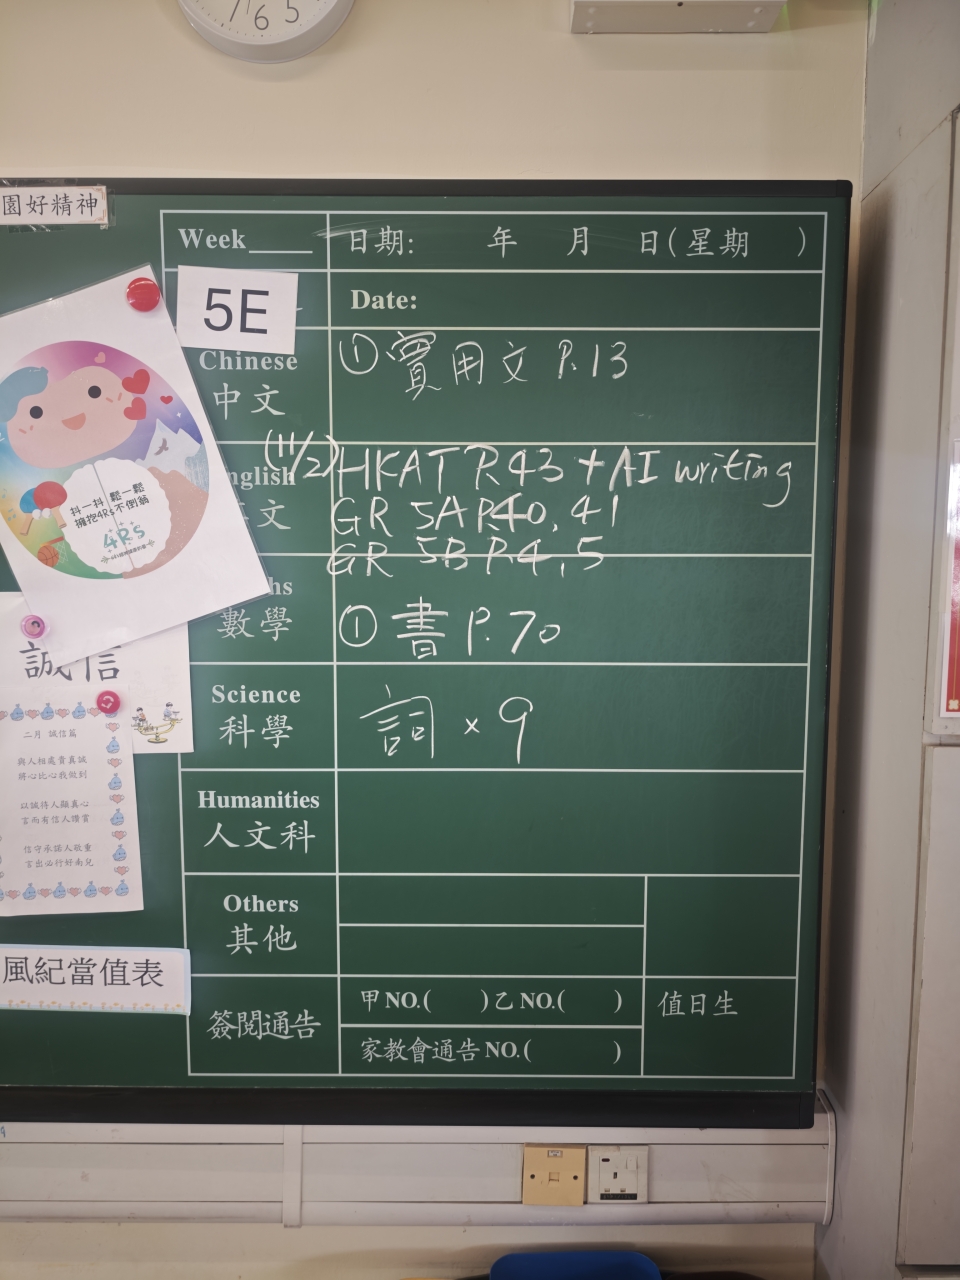 7 6 5
園好精神
Week
日期: 年 月 日(星期 )
5E
Date:
Chinese
中文
① 實用文 P.13
(11/2)
nglish
文
HKAT P.43 + AI writing
GR 5A P.40, 41
GR 5B P.4, 5
hs
數學
① 書 P.70
Science
科學
詞 × 9
Humanities
人文科
Others
其他
簽閱通告
甲NO.( )乙NO.( )
家教會通告NO.( )
值日生
抖一抖 鬆一鬆
擁抱4Rs不倒翁
4Rs
誠信
二月 誠信篇
與人相處貴真誠
將心比心我做到
以誠待人顯真心
言而有信人讚賞
信守承諾人敬重
言出必行好南兒
風紀當值表